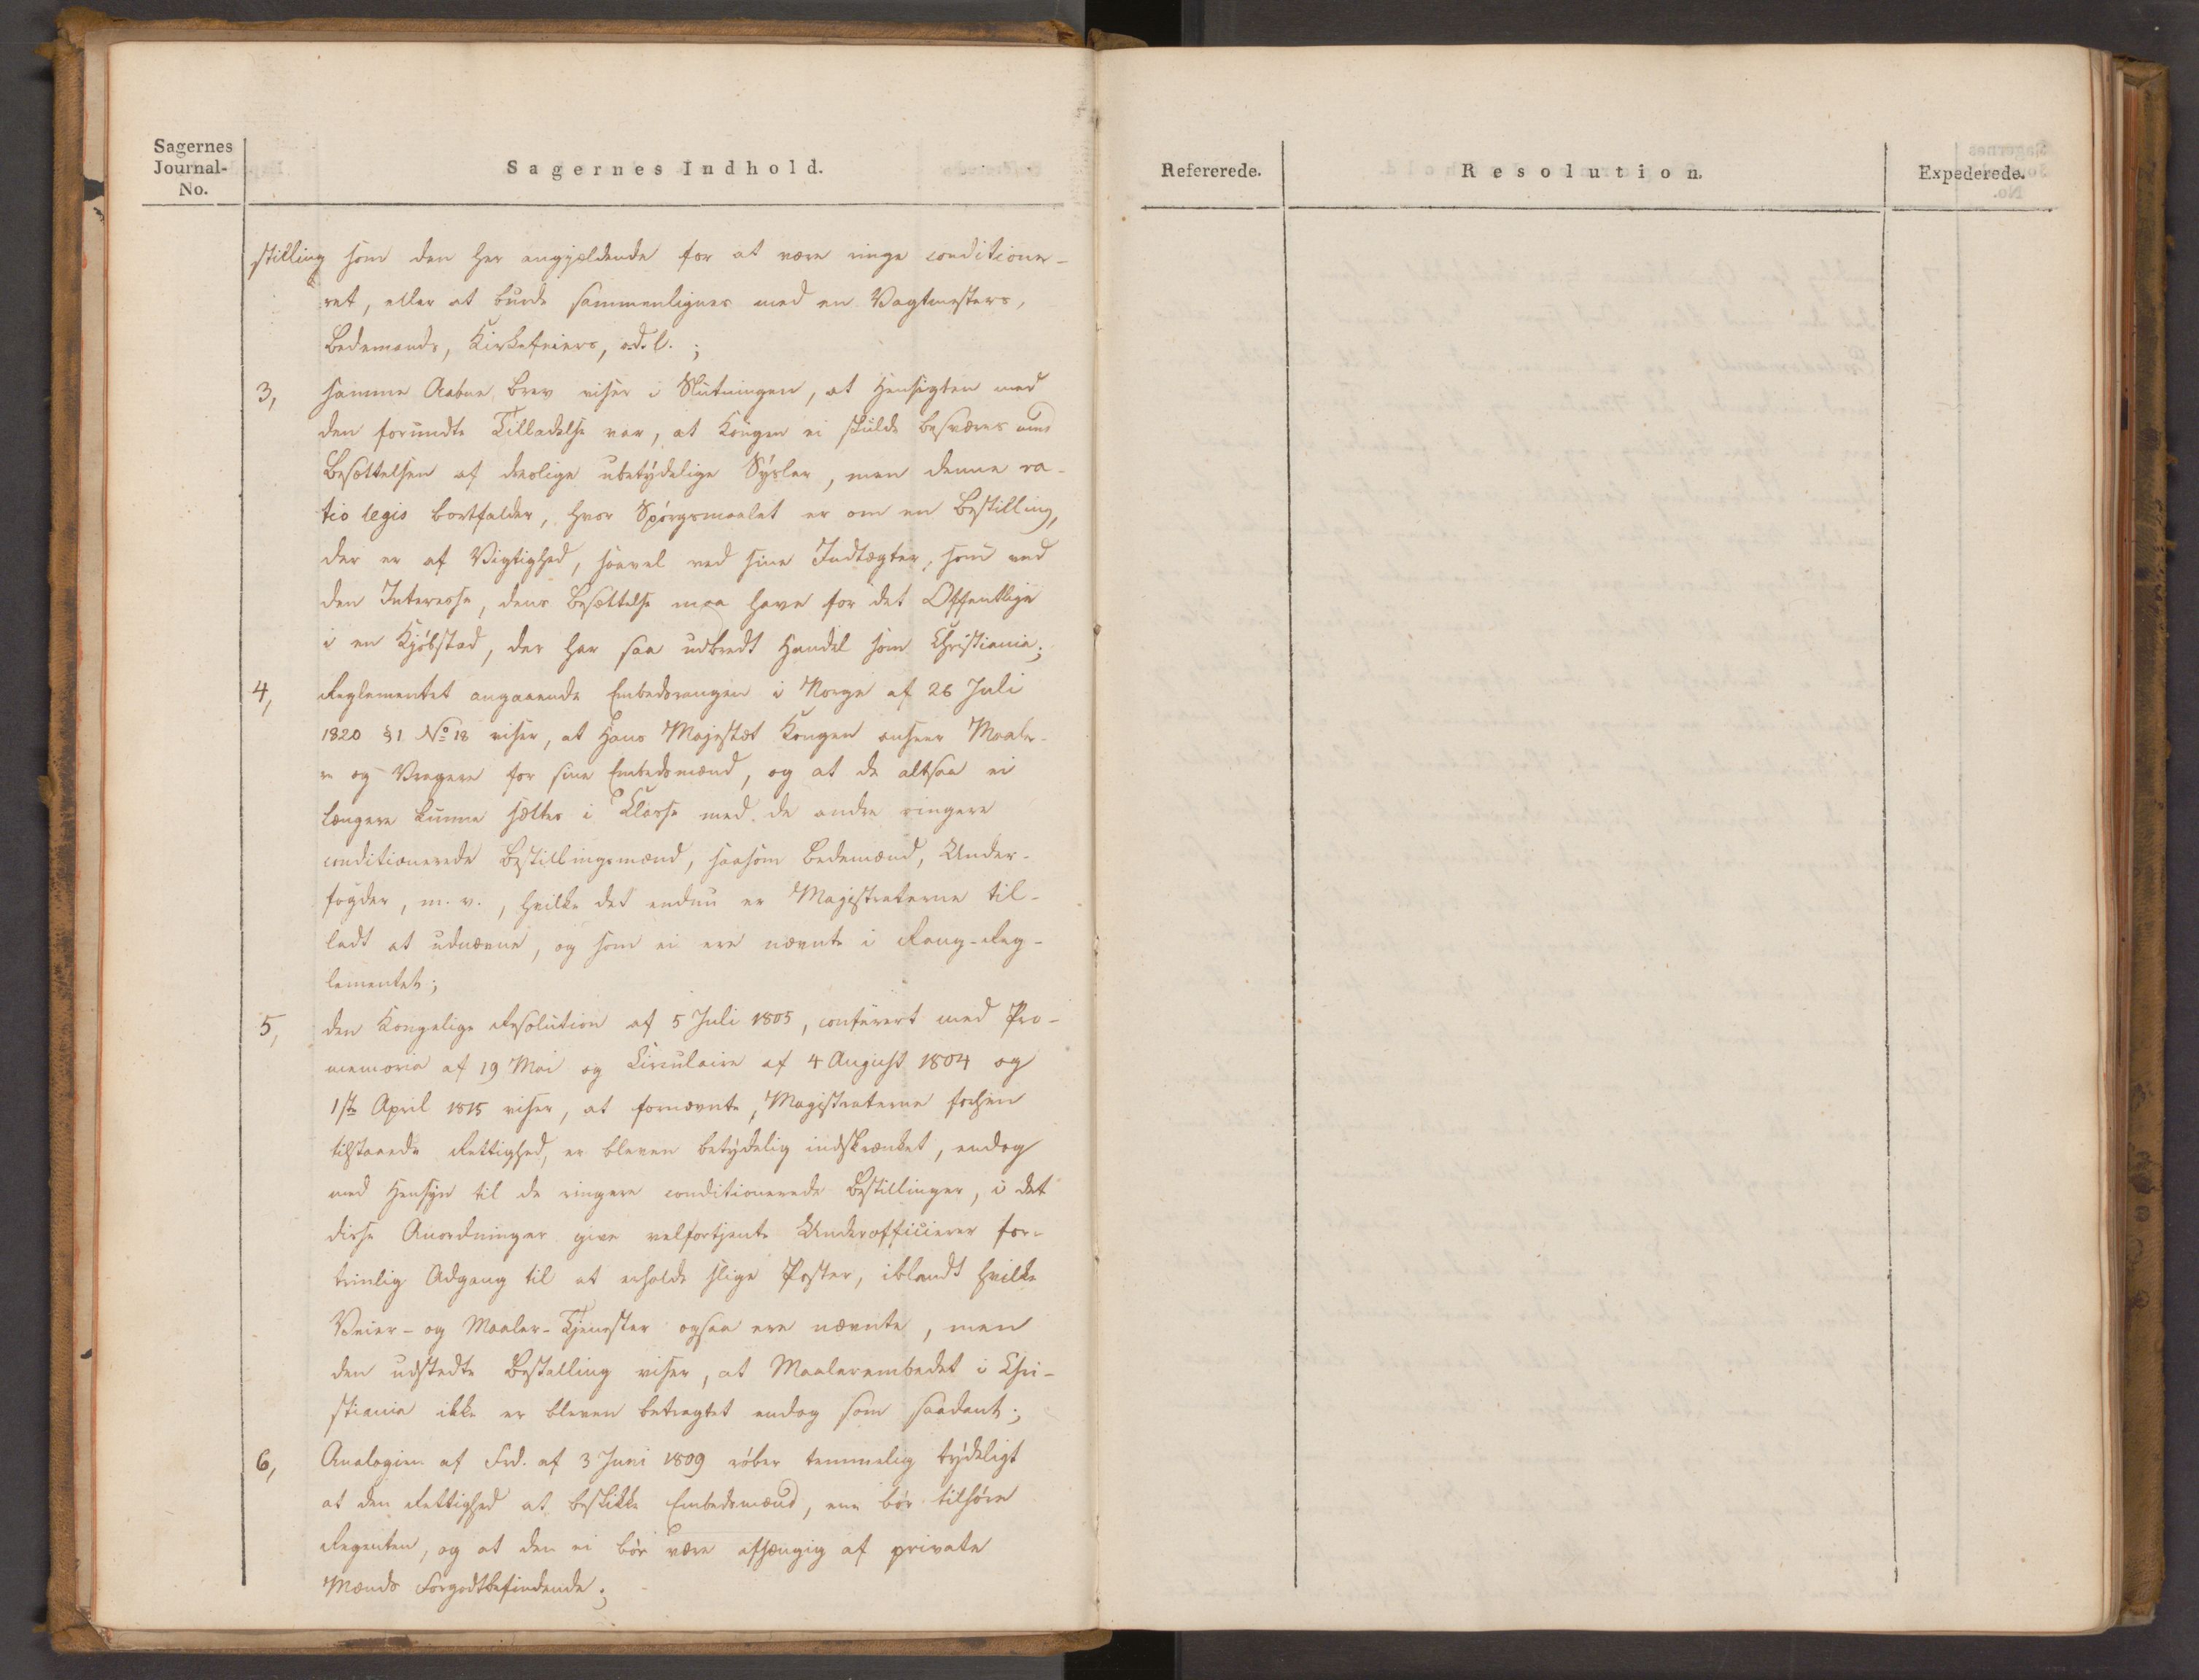 Sagernes
Journal-
No.
Sagernes Indhold.
stilling som den her angjældende for at være ringe conditione-
ret, eller at burde sammenlignes med en Vagtmesters,
Bedemands, Kirkefeiers, o.d.l.;
3, samme Aabne Brev viser i Slutningen, at Hensigten med
den forundte Tilladelse var, at Kongen ei skulde besværes med
Besættelsen af deslige ubetydelige Sysler, men denne ra-
tio legis bortfalder, hvor Spørgsmaalet er om en Bestilling,
der er af Vigtighed, saavel ved sine Indtægter, som ved
den Interesse, dens Besættelse maa have for det Offentlige
i en Kjøbstad, der har saa udbredt Handel som Christiania;
4, Reglementet angaaende Embedsrangen i Norge af 26 Juli
1820 §1 No 18 viser, at Hans Majestæt Kongen anseer Maale-
re og Vragere for sine Embedsmænd, og at de altsaa ei
længere kunne sættes i Classe med de andre ringere
conditionerede Bestillingsmænd, saasom Bedemænd, Under-
fogder, m. v., hvilke det endnu er Magistraterne til-
ladt at udnævne, og som ei ere nævnte i Rang-Reg-
lementet;
5, den Kongelige Resolution af 5 Juli 1805, confereret med Pro-
memoria af 19 Mai og Circulaire af 4 August 1804 og
1ste April 1815 viser, at fornævnte, Magistraterne forhen
tilstaaede Rettighed, er bleven betydelig indskrænket, endog
med Hensyn til de ringere conditionerede Bestillinger, i det
disse Anordninger give velfortjente Underofficierer for-
trinlig Adgang til at erholde slige Poster, iblandt hvilke
Veier- og Maaler-Tjenester ogsaa ere nævnte, men
den udstedte Bestalling viser, at Maalerembedet i Chri-
stiania ikke er bleven betragtet endog som saadant;
6, Analogien af Frd. af 3 Juni 1809 røber temmelig tydeligt
at den Rettighed at beskikke Embedsmænd, ene bør tilhøre
Regenten, og at den ei bør være afhængig af private
Mænds Forgodtbefindende;
Refererede.
Resolution.
Expederede.